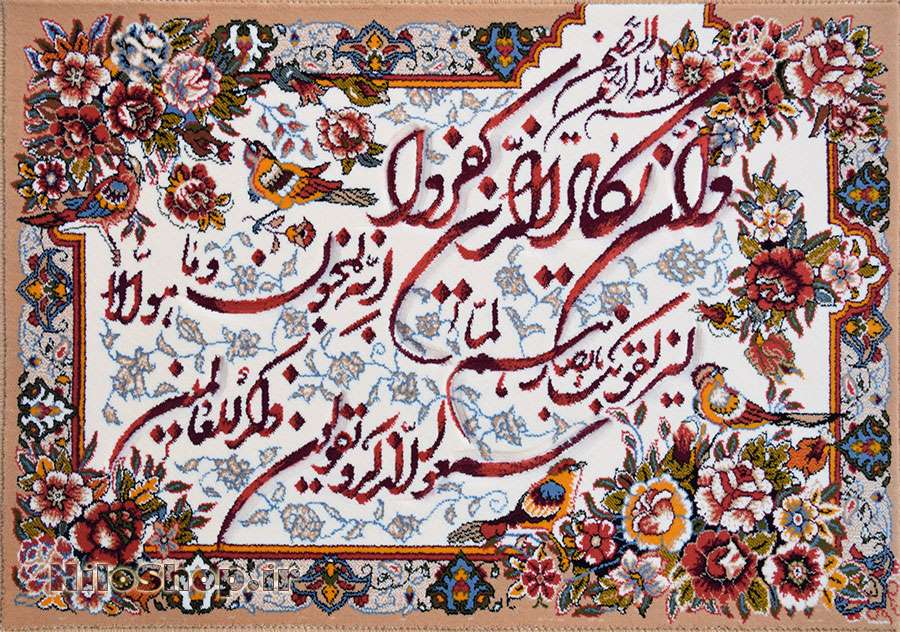 بسم الله الرحمن الرحیم
وان یکاد الذین کفروا
لیزلقونک بابصارهم لما
سمعوا الذکر و یقولون
انه لمجنون وما هو الا
ذکر للعالمین
HiloShop.ir